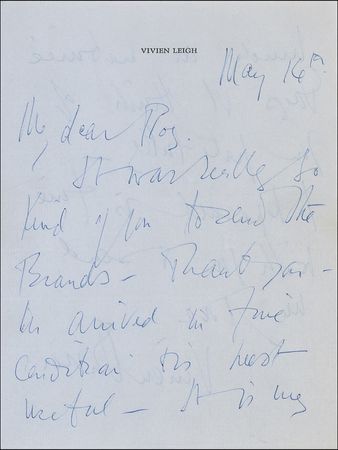 VIVIEN LEIGH
May 16th
My dear Roy.
It was really so
kind of you to send the
Brands — Thank you —
arrived in fine
condition is most
useful — It is my